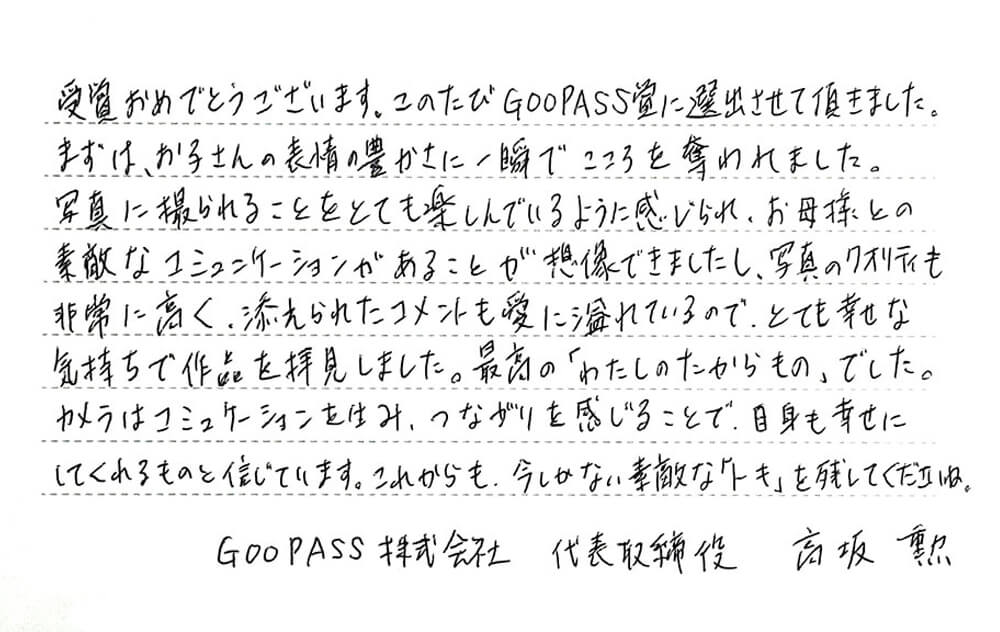 受賞おめでとうございます。このたびGOOPASS賞に選出させて頂きました。
まずは、お子さんの表情の豊かさに一瞬でこころを奪われました。
写真に撮られることをとても楽しんでいるように感じられ、お母様との
素敵なコミュニケーションがあることが想像できましたし、写真のクオリティも
非常に高く、添えられたコメントも愛に溢れているので、とても幸せな
気持ちで作品を拝見しました。最高の「わたしのたからもの」でした。
カメラはコミュケーションを生み、つながりを感じることで、自身も幸せに
してくれるものと信じています。これからも、今しかない素敵な「トキ」を残してくださいね。
GOOPASS 株式会社 代表取締役 高坂 勲